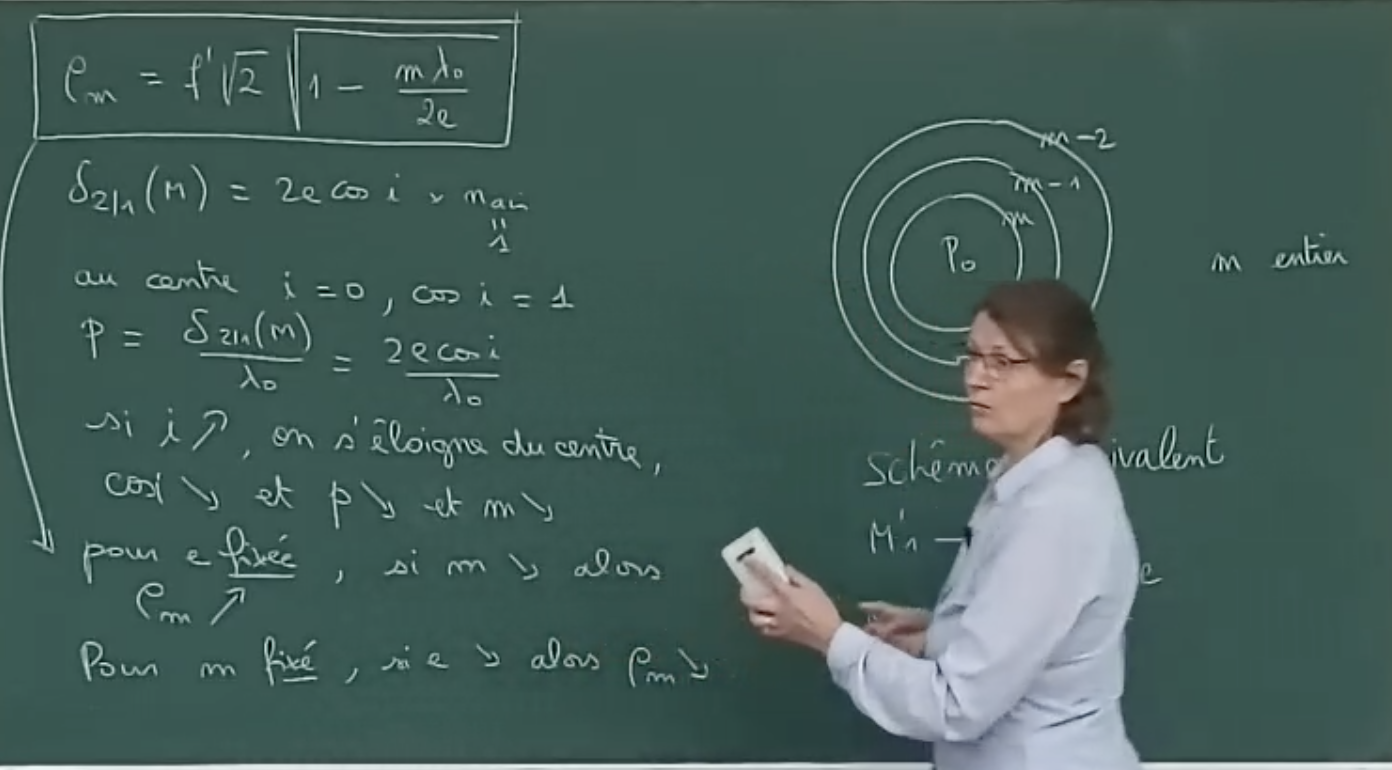 ρm = f'√2 √(1 - mλ₀/2e)
δ2/1(M) = 2e cos i × nair
"
1
au centre i = 0, cos i = 1
p = δ2/1(M)/λ₀ = 2e cos i/λ₀
si i ↗, on s'éloigne du centre,
cos i ↘ et p ↘ et m ↘
pour e fixée, si m ↘ alors
ρm ↗
Pour m fixé, si e ↘ alors ρm ↘
m-2
m-1
m
P₀
m entier
M'1 -
e